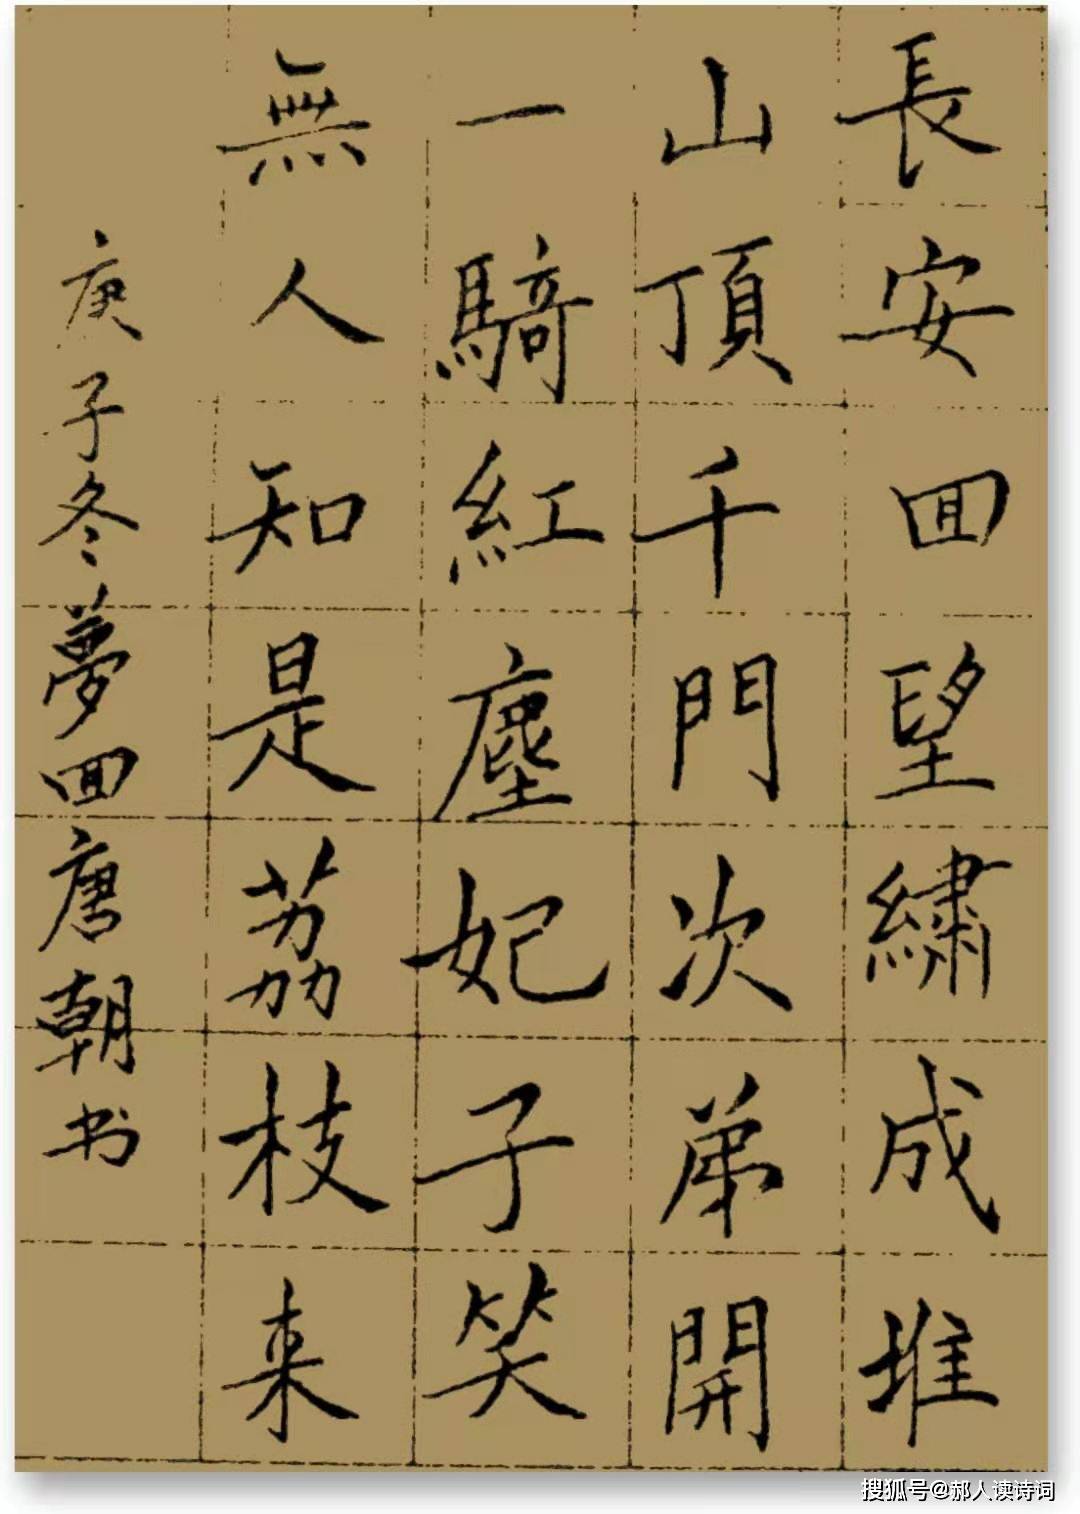 長安回望繡成堆
山頂千門次弟開
一騎紅塵妃子笑
無人知是荔枝来
庚子冬夢回唐朝书
搜狐号@郝人读诗词